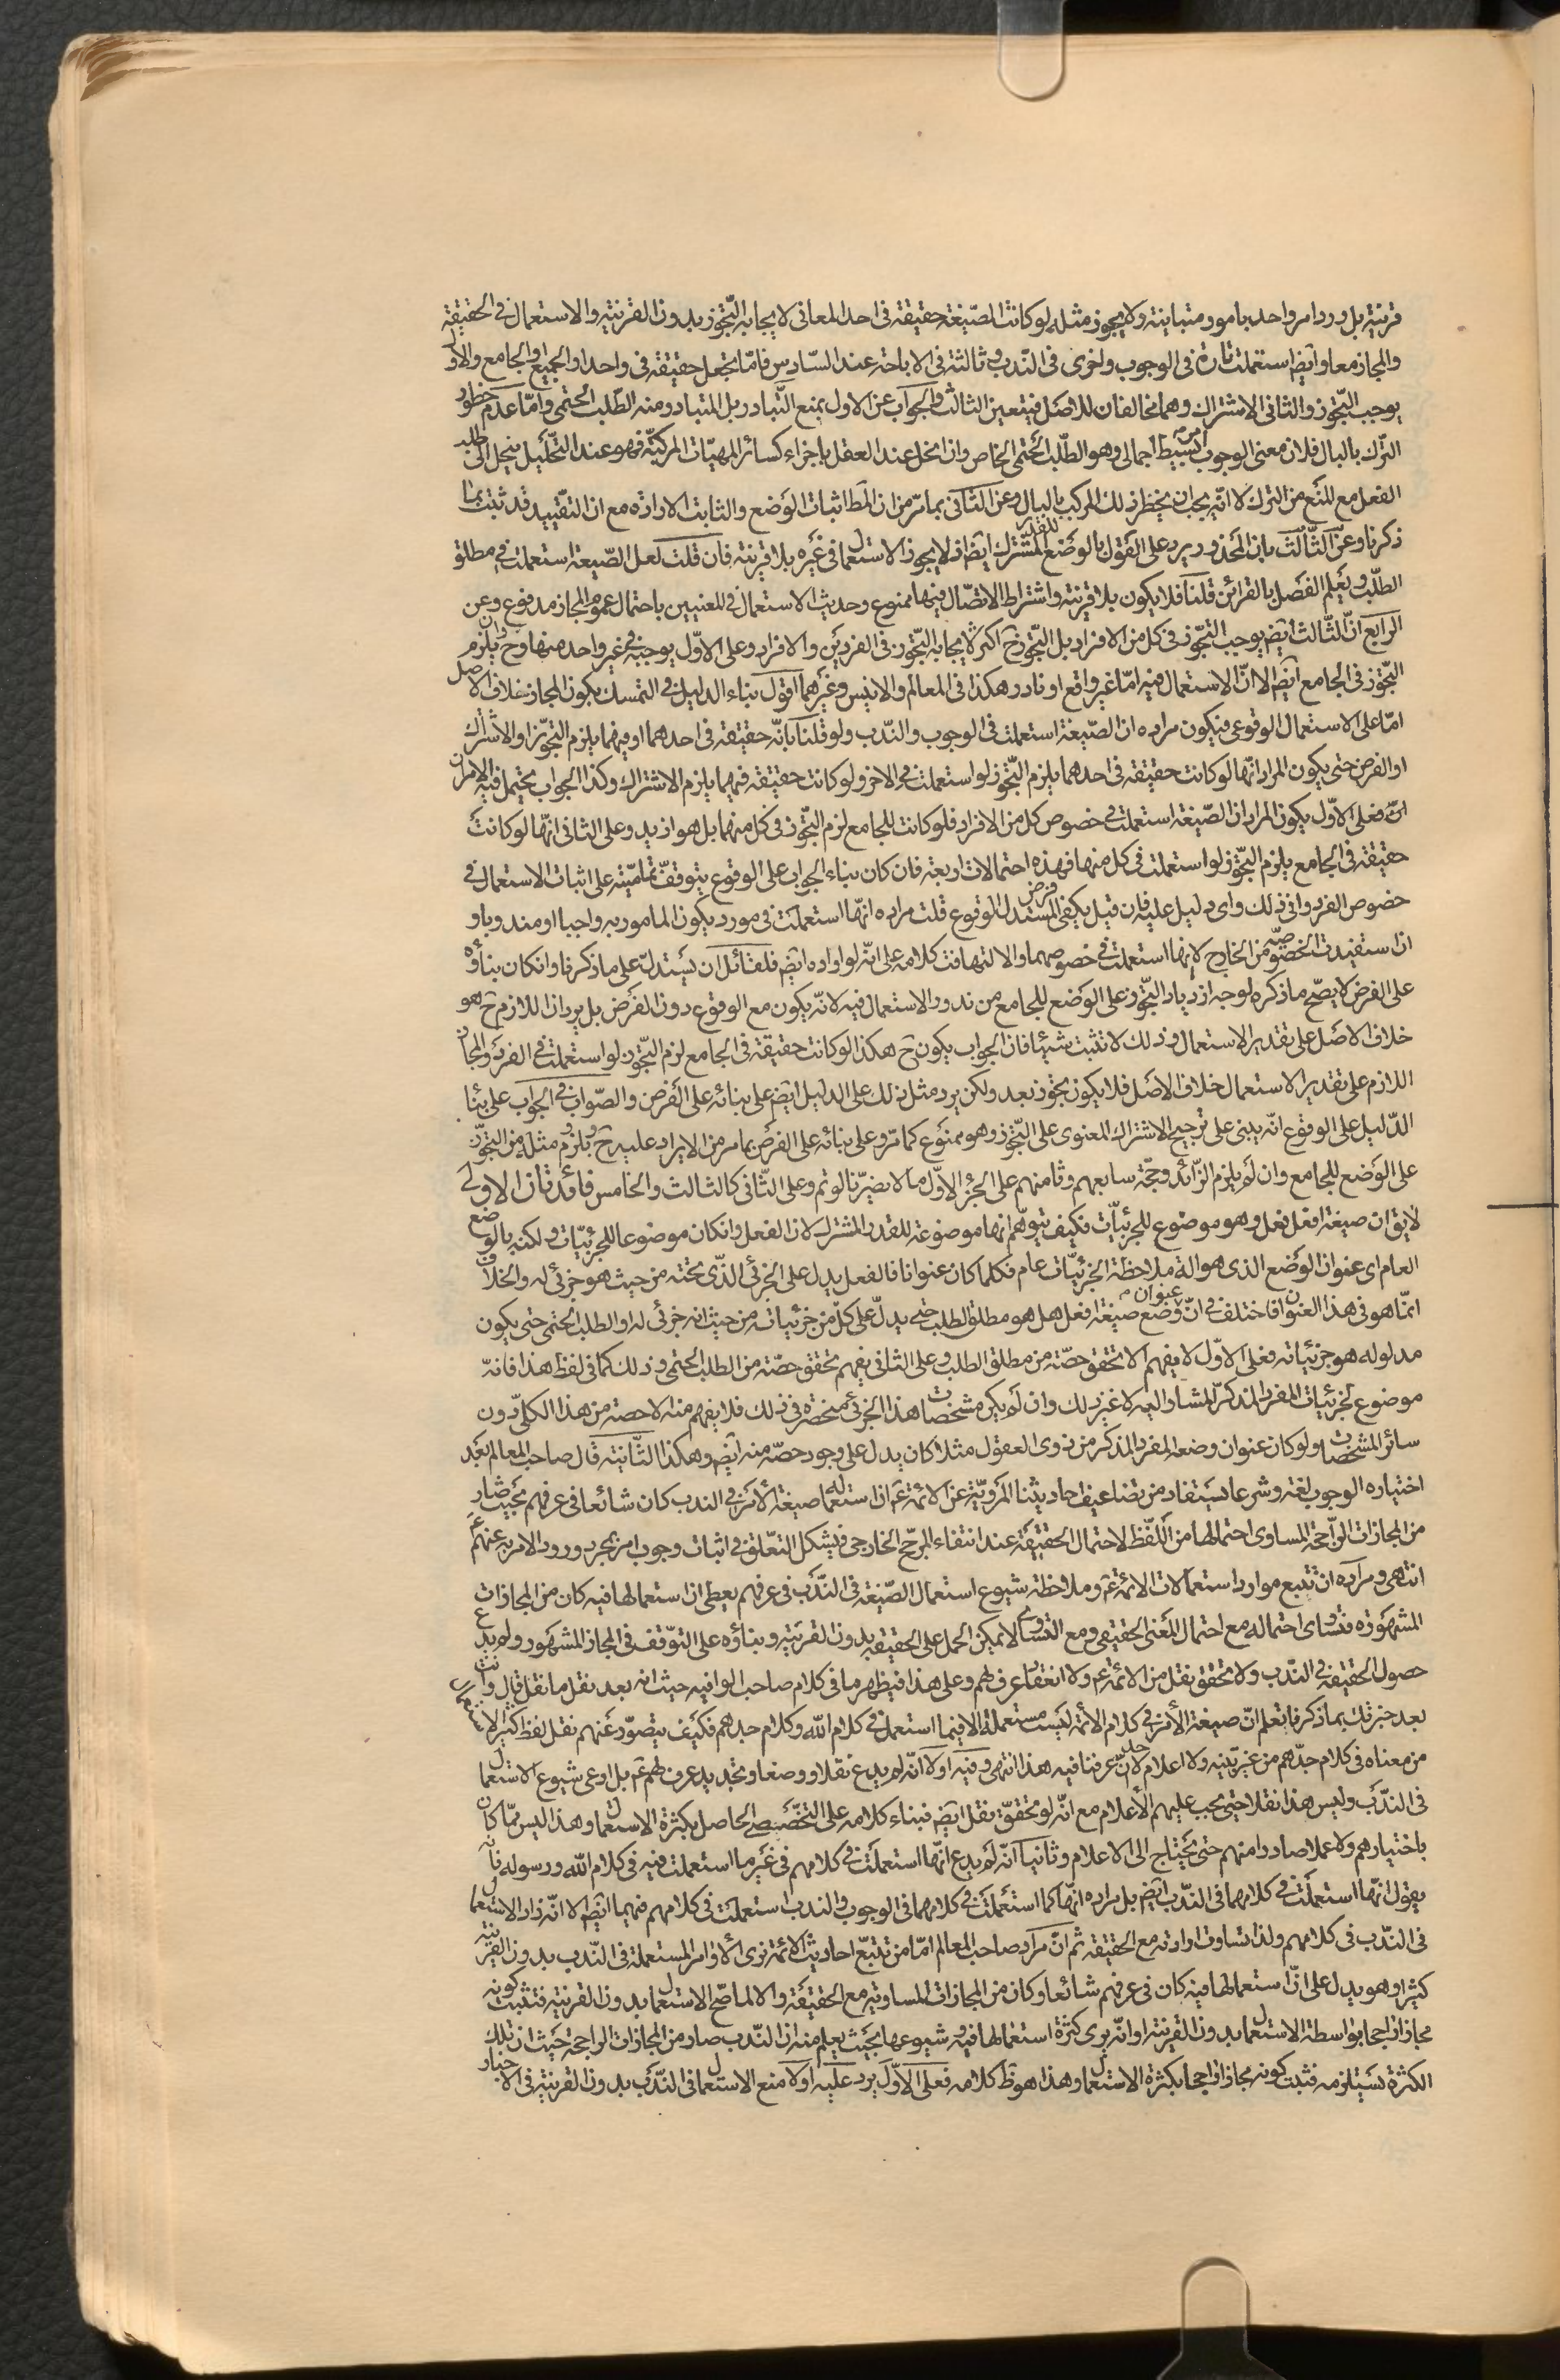 قرنية بل ورد امر واحد بامور متباينة ولا يجوز مثله لو كانت الصّيغة حقيقة فى احد المعانى لايجابه التّجوز بدون القرينة والاستعمال فى الحقيقة
والمجاز معا وايضا استعملت تارة فى الوجوب واخرى فى النّدب وثالثة فى الاباحة عند السّادس فامّا يجعل حقيقة فى واحد او الجميع او الجامع والاول
يوجب التّجوز والثانى الاشتراك وهما مخالفان للاصل فيتعين الثالث والجواب عن الاول بمنع التّبادر بل المتبادر منه الطّلب الحتمى وامّا عدم خطور
الترك بالبال فلان معنى الوجوب امر بسيط اجمالى وهو الطّلب الحتمى الخاص وان انحل عند العقل باجزاء كسائر المهيّات المركبّة فهو عند التحّليل ينحل الى طلب
الفعل مع المنع من الترك لا انّه يجب ان يخطر ذلك المركب بالبال وعن الثانى بما مرّ من ان المط اثبات الوضع والثابت الارادة مع ان التقّييد قد ثبت بما
ذكرنا وعن الثّالث بان المحذور يرد على القول بالوضع للقدر المشترك ايضا اذ لا يجوز الاستعمال فى غيره بلا قرينة فان قلت لعل الصّيغة استعملت فى مطلق
الطلّب ويعلم الفصل بالقرائن قلنا فلا يكون بلا قرينة واشتراط الاتصّال فيها ممنوع وحديث الاستعمال فى المعنيين باحتمال عموم المجاز مدفوع وعن
الرابع انّ الثّالث ايضا يوجب التجّوز فى كل من الافراد بل التجّوز ح اكثر لايجابه التّجوز فى الفردين والافراد وعلى الاوّل يوجبه فى غير واحد منها وح وان يلزم
التجّوز فى الجامع ايضا الا انّ الاستعمال فيه امّا غير واقع او نادر هكذا فى المعالم والانيس وغيرهما اقول بناء الدليل فى التمسك بكون المجاز خلاف الاصل
امّا على الاستعمال الوقوعى فيكون مراده ان الصّيغة استعملت فى الوجوب والنّدب ولو قلنا بانّه حقيقة فى احدهما او فيهما يلزم التجوّز او الاشتراك
او الفرضى حتى يكون المراد انّها لو كانت حقيقة فى احدهما يلزم التّجوز لو استعملت فى الاخر ولو كانت حقيقة فيهما يلزم الاشتراك وكذا الجواب يحتمل فيه الامران
فعلى الاوّل يكون المراد ان الصّيغة استعملت فى خصوص كل من الافراد فلو كانت للجامع لزم التجّوز فى كل منهما بل هو ازيد وعلى الثانى انّها لو كانت
حقيقة فى الجامع يلزم التجّوز لو استعملت فى كل منها فهذه احتمالات اربعة فان كان بناء الجواب على الوقوع يتوقف تماميّته على اثبات الاستعمال فى
خصوص الفرد وانى ذلك واى دليل عليه فان قيل يكفى المستدل فرض الوقوع قلت مراده انّها استعملت فى مورد يكون المامور به واجبا او مندوبا و
ان استفيدت الخصوصيّة من الخارج لا انها استعملت فى خصوصهما والا لتهافت كلامه على انّه لو اراده ايضا فلقائل ان يستدلّ على ما ذكرنا وان كان بناؤه
على الفرض لا يصّح ما ذكره لوجه ازدياد التجّوز على الوضع للجامع من ندور الاستعمال فيه لانّه يكون مع الوقوع دون الفرض بل يرد ان اللازم ح هو
خلاف الاصل على تقدير الاستعمال وذلك لا تثبت شيئا فان الجواب يكون ح هكذا لو كانت حقيقة فى الجامع لزم التجّوز لو استعملت فى الفرد والمجاز
اللازم على تقدير الاستعمال خلاف الاصل فلا يكون تجوز بعد ولكن يرد مثل ذلك على الدليل ايضا على بنائه على الفرض والصّواب فى الجواب على بناء
الدّليل على الوقوع انّه يبنى على ترجيح الاشتراك المعنوى على التّجوز وهو ممنوع كما مرّ وعلى بنائه على الفرض بما مر من الايراد عليه ح ولزوم مثله من التجوّز
على الوضع للجامع وان لم يلزم الزّائد وحجّة سابعهم وثامنهم على الجزء الاوّل ما لا يضرّنا لو تم وعلى الثّانى كالثالث والخامس فائدتان الاولى
لا يق ان صيغة افعل فعل وهو موضوع للجزئيّات فكيف يتوهّم انها موضوعة للقدر المشترك لان الفعل وان كان موضوعا للجزئيّات ولكنه بالوضع
العام اى عنوان الوضع الذى هو الة ملاحظة الجزئيّات عام فكلما كان عنوانا فالفعل يدل على الجزئى الذّى تحته من حيث هو جزئى له والخلاف
انمّا هو فى هذا العنوان فاختلف فى انّ عنوان وضع صيغة افعل هل هو مطلق الطلب حتى يدلّ على كلّ من جزئياته من حيث انه جزئى له او الطلب الحتمى حتى يكون
مدلوله هو جزئياته فعلى الاوّل لا يفهم الا تحقق حصّة من مطلق الطلب وعلى الثانى يفهم تحقق حصّة من الطلب الحتمى وذلك كما فى لفظ هذا فانّه
موضوع لجزئيات المفرد المذكرّ المشار اليه لا غير ذلك وان لم يكن مشخصات هذا الجزئى منحصرة فى ذلك فلا يفهم منه الا حصة من هذا الكلّى دون
سائر المشخصات ولو كان عنوان وضعه المفرد المذكر من ذوى العقول مثلا كان يدل على وجود حصّة منه ايضا وهكذا الثّانية قال صاحب المعالم بعد
اختياره الوجوب لغة وشرعا يستفاد من تضاعيف احاديثنا المرويّة عن الائمة ع ان استعمال صيغة الامر فى الندب كان شائعا فى عرفهم بحيث صار
من المجازات الرّاجحة المساوى احتمالها من اللّفظ لاحتمال الحقيقة عند انتفاء المرجّح الخارجى فيشكل التعّلق فى اثبات وجوب امر بمجرد ورود الامر به عنهم ع
انتهى ومراده ان تتبع موارد استعمالات الائمة ع وملاحظة شيوع استعمال الصّيغة فى النّدب فى عرفهم يعطى ان استعمالها فيه كان من المجازات
المشهورة فتساوى احتماله مع احتمال المعنى الحقيقى ومع التساوى لا يمكن الحمل على الحقيقة بدون القرينة وبناؤه على التوّقف فى المجاز المشهور ولم يدع
حصول الحقيقة فى النّدب ولا تحقق نقل من الائمة ع ولا انعقاد عرف لهم وعلى هذا فيظهر ما فى كلام صاحب الوافية حيث انه بعد نقل ما نقل قال وانت
بعد خبرتك بما ذكرنا تعلم انّ صيغة الامر فى كلام الائمة ليست مستعملة الا فيما استعمل فى كلام الله وكلام جدهم فكيف يتصوّر عنهم نقل لفظ كثير الاستعمال
من معناه فى كلام جدّهم من غير تنبيه ولا اعلام لان عرفنا فيه هذا انتهى وفيه اولا انّه لم يدع نقلا ووضعا وتجديد عرف لهم ع بل ادعى شيوع الاستعمال
فى النّدب وليس هذا نقلا حتى يجب عليهم الاعلام مع انّه لو تحققّ نقل ايضا فبناء كلامه على التخّصيصى الحاصل بكثرة الاستعمال وهذا ليس ممّا كان
باختيارهم ولا عملا صادرا منهم حتى يحتاج الى الاعلام وثانيا انّه لم يدع انّها استعملت فى كلامهم فى غير ما استعملت فيه فى كلام الله ورسوله بان
يقول انّها استعملت فى كلامهما فى النّدب ايضا بل مراده انّها كما استعملت فى كلامهما فى الوجوب والندب استعملت فى كلامهم فيهما ايضا الا انّه زاد الاستعمال
فى النّدب فى كلامهم ولذا تساوت ارادته مع الحقيقة ثم انّ مراد صاحب المعالم امّا من تتبّع احاديث الائمة نرى الاوامر المستعملة فى النّدب بدون القرينة
كثيرا وهو يدل على انّ استعمالها فيه كان فى عرفهم شائعا وكان من المجازات المساوية مع الحقيقة والا لما صّح الاستعمال بدون القرينة فتثبت كونه
مجازا راجحا بواسطة الاستعمال بدون القرينة او انّه يرى كثرة استعمالها فيه وشيوعها بحيث يعلم منه ان النّدب صار من المجازات الراجحة حيث ان تلك
الكثرة تستلزمه فثبت كونه مجازا راجحا بكثرة الاستعمال وهذا هو ظ كلامه فعلى الاوّل يرد عليه اولا منع الاستعمال فى النّدب بدون القرينة فى الاخبار